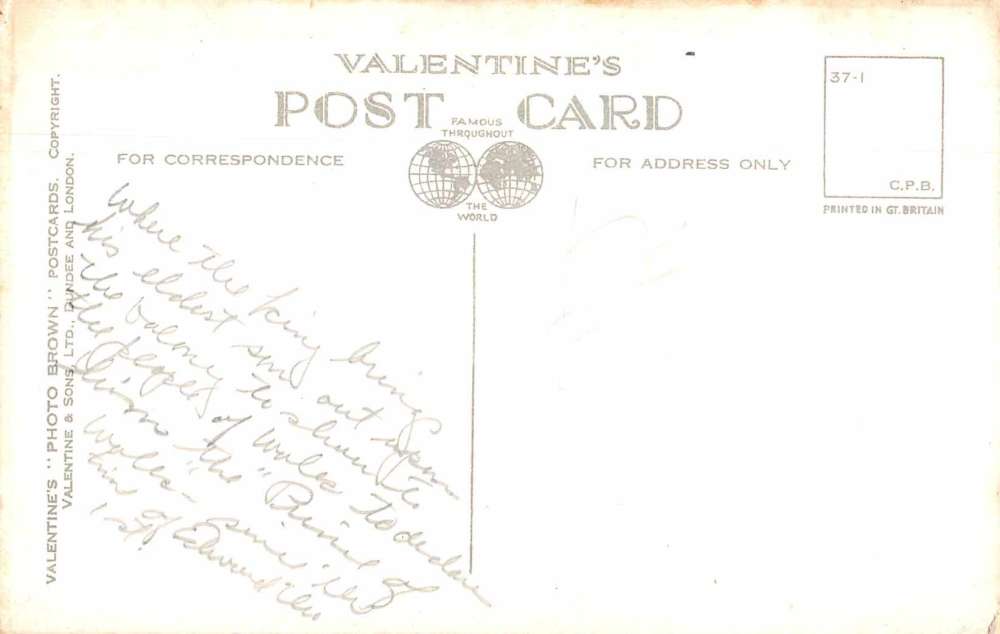 VALENTINE'S
POST CARD
FAMOUS
THROUGHOUT
THE
WORLD
FOR CORRESPONDENCE
FOR ADDRESS ONLY
37-1
C.P.B.
PRINTED IN GT. BRITAIN
VALENTINE'S "PHOTO BROWN" POSTCARDS. COPYRIGHT.
VALENTINE & SONS, LTD., DUNDEE AND LONDON.
Where the king brings
his eldest son out upon
the balcony to show to
the people of Wales to declare
him "the "Prince of
Wales - since the
time of Edward the
1st.